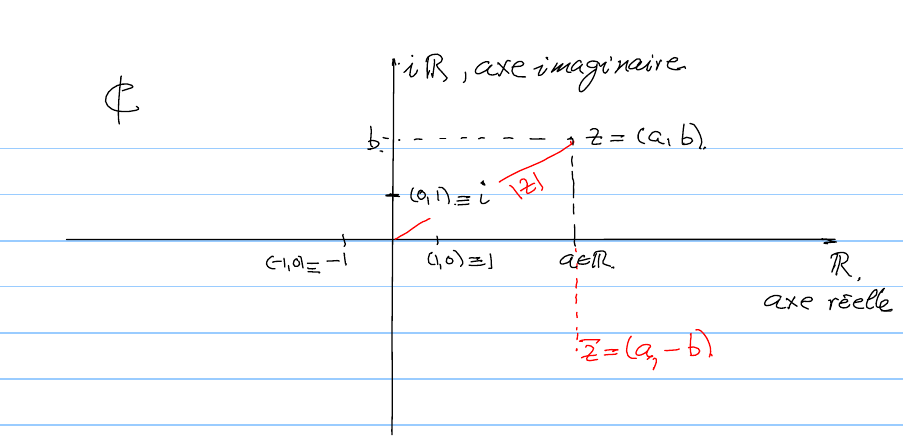 iℝ, axe imaginaire
ℂ
b
z = (a, b).
(0,1) ≡ i
|z|
(-1,0) ≡ -1
(1,0) ≡ 1
a∈ℝ.
ℝ,
axe réelle
z̄ = (a, -b)